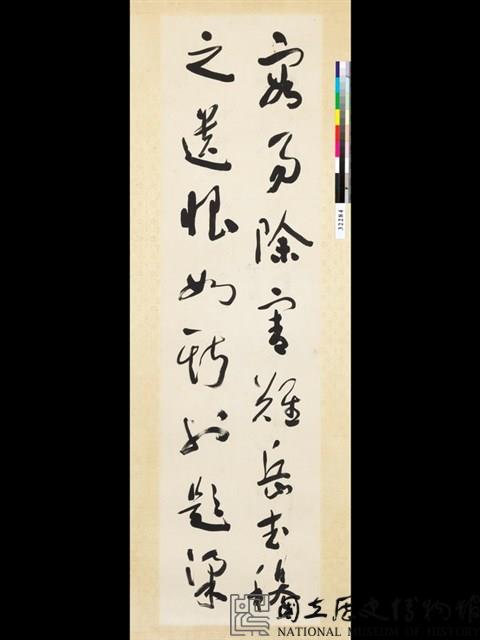 寇易除害難岳武穆
之遺恨如斯題梁
32284
國立歷史博物館
NATIONAL MUSEUM OF HISTORY